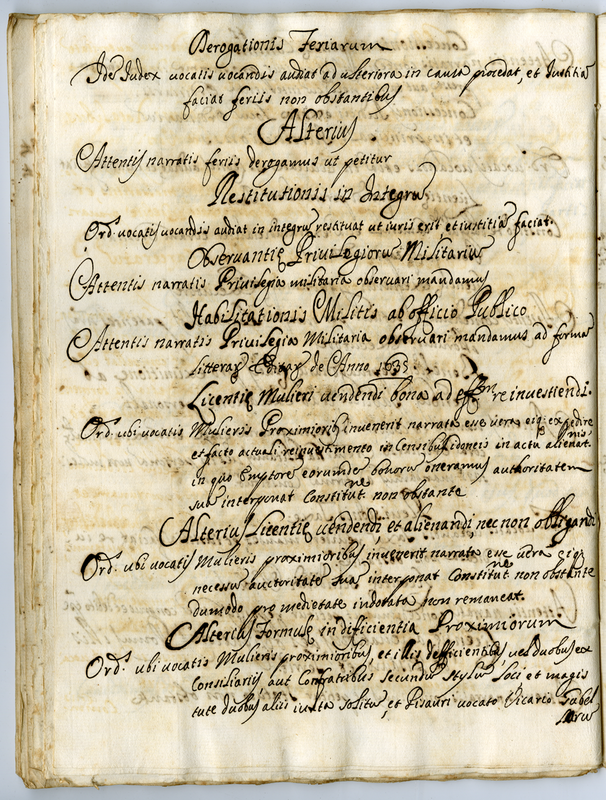 Derogationis Feriarum
Ide Iudex vocatis vocandis audiat ad ulteriora in causa procedat, et Iustitia
faciat feriis non obstantibus
Alterius
Attentis narratis feriis derogamus ut petitur
Restitutionis in Integru
Ord. vocatis vocandis audiat in integru restituat ut iuris erit et iustitia faciat.
Observantię Privilegioru Militariu
Attentis narratis Privilegia militaria observari mandamus
Habilitationis Militis ab officio Publico
Attentis narratis Privilegia Militaria observari mandamus ad forma
litteray Editay de Anno 1635.
Licentię Mulieri vendendi bona ad effm reinvestiendi.
Ord. ubi vocatis Mulieris Proximiorib invenerit narrata esse vera eiq expedire
et facto actuali reinvestimento in Censibus idoneis in actu alienatnis,
in quo Emptore eorumde bonoru oneramus authoritatem
sua interponat Constitutne non obstante
Alterius Licentię vendendi, et alienandi, nec non obligandi
Ord. ubi vocatis Mulieris proximioribus invenerit narrata esse vera eiq
necessus auctoritate sua interponat Constitutne non obstante
dumodo pro medietate indotata non remaneat.
Alterius Formulę in dificientia Proximiorum
Ord. ubi vocatis Mulieris proximioribus, et illis defficientibus vel duobus ex
Consiliariis, aut Confratribus secundu stylu loci et magis
tute duobus aliis iuxta solitu, et Pisauri vocato Vicario Gabel
laru